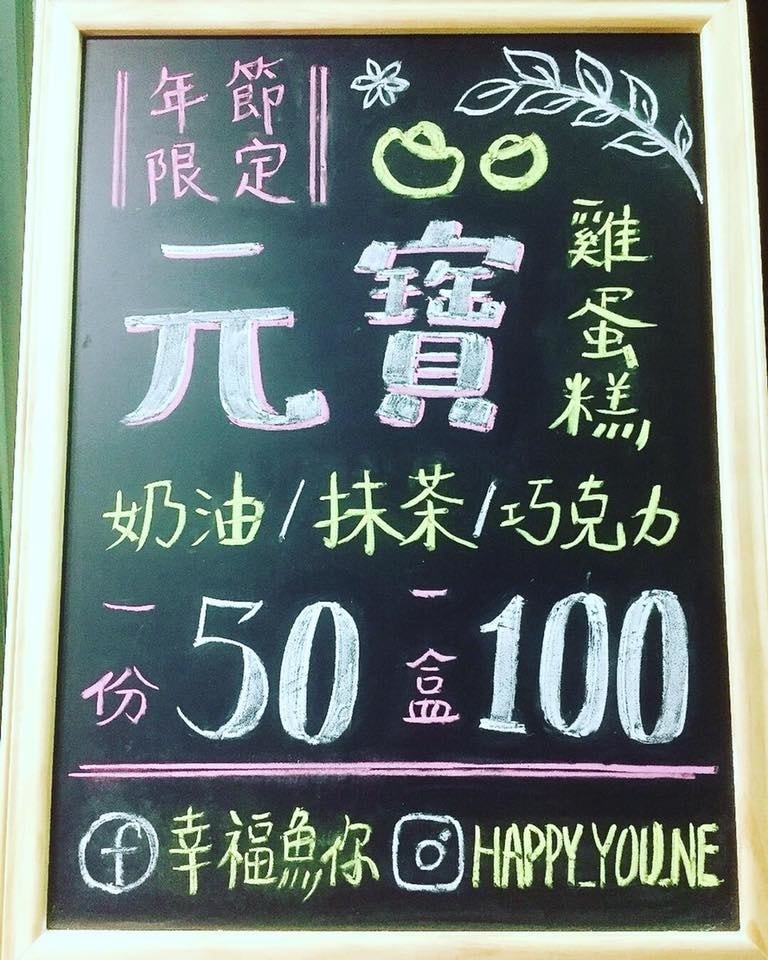 年節
限定
元寶
雞蛋糕
奶油/抹茶/巧克力
一份 50 一盒 100
幸福魚你 HAPPY_YOU_NE